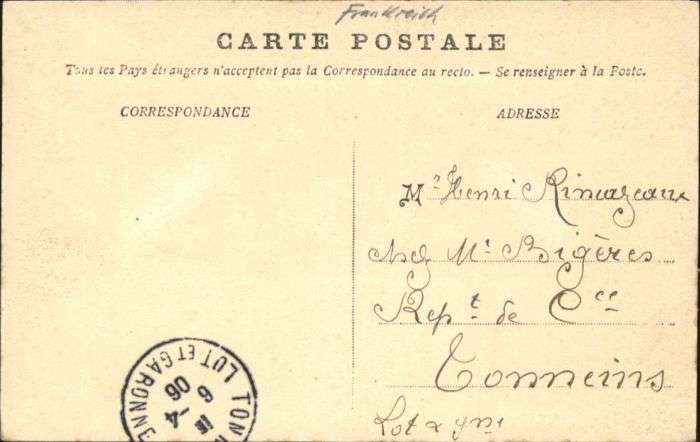 Frankreich
CARTE POSTALE
Tous les Pays étrangers n'acceptent pas la Correspondance au recto. — Se renseigner à la Poste.
CORRESPONDANCE
ADRESSE
Mr Henri Rimazeaux
chez Mr Bigères
Rept de Cce
Tonneins
Lot & gne
TONN
LOT ET GARONNE
9
-4
06